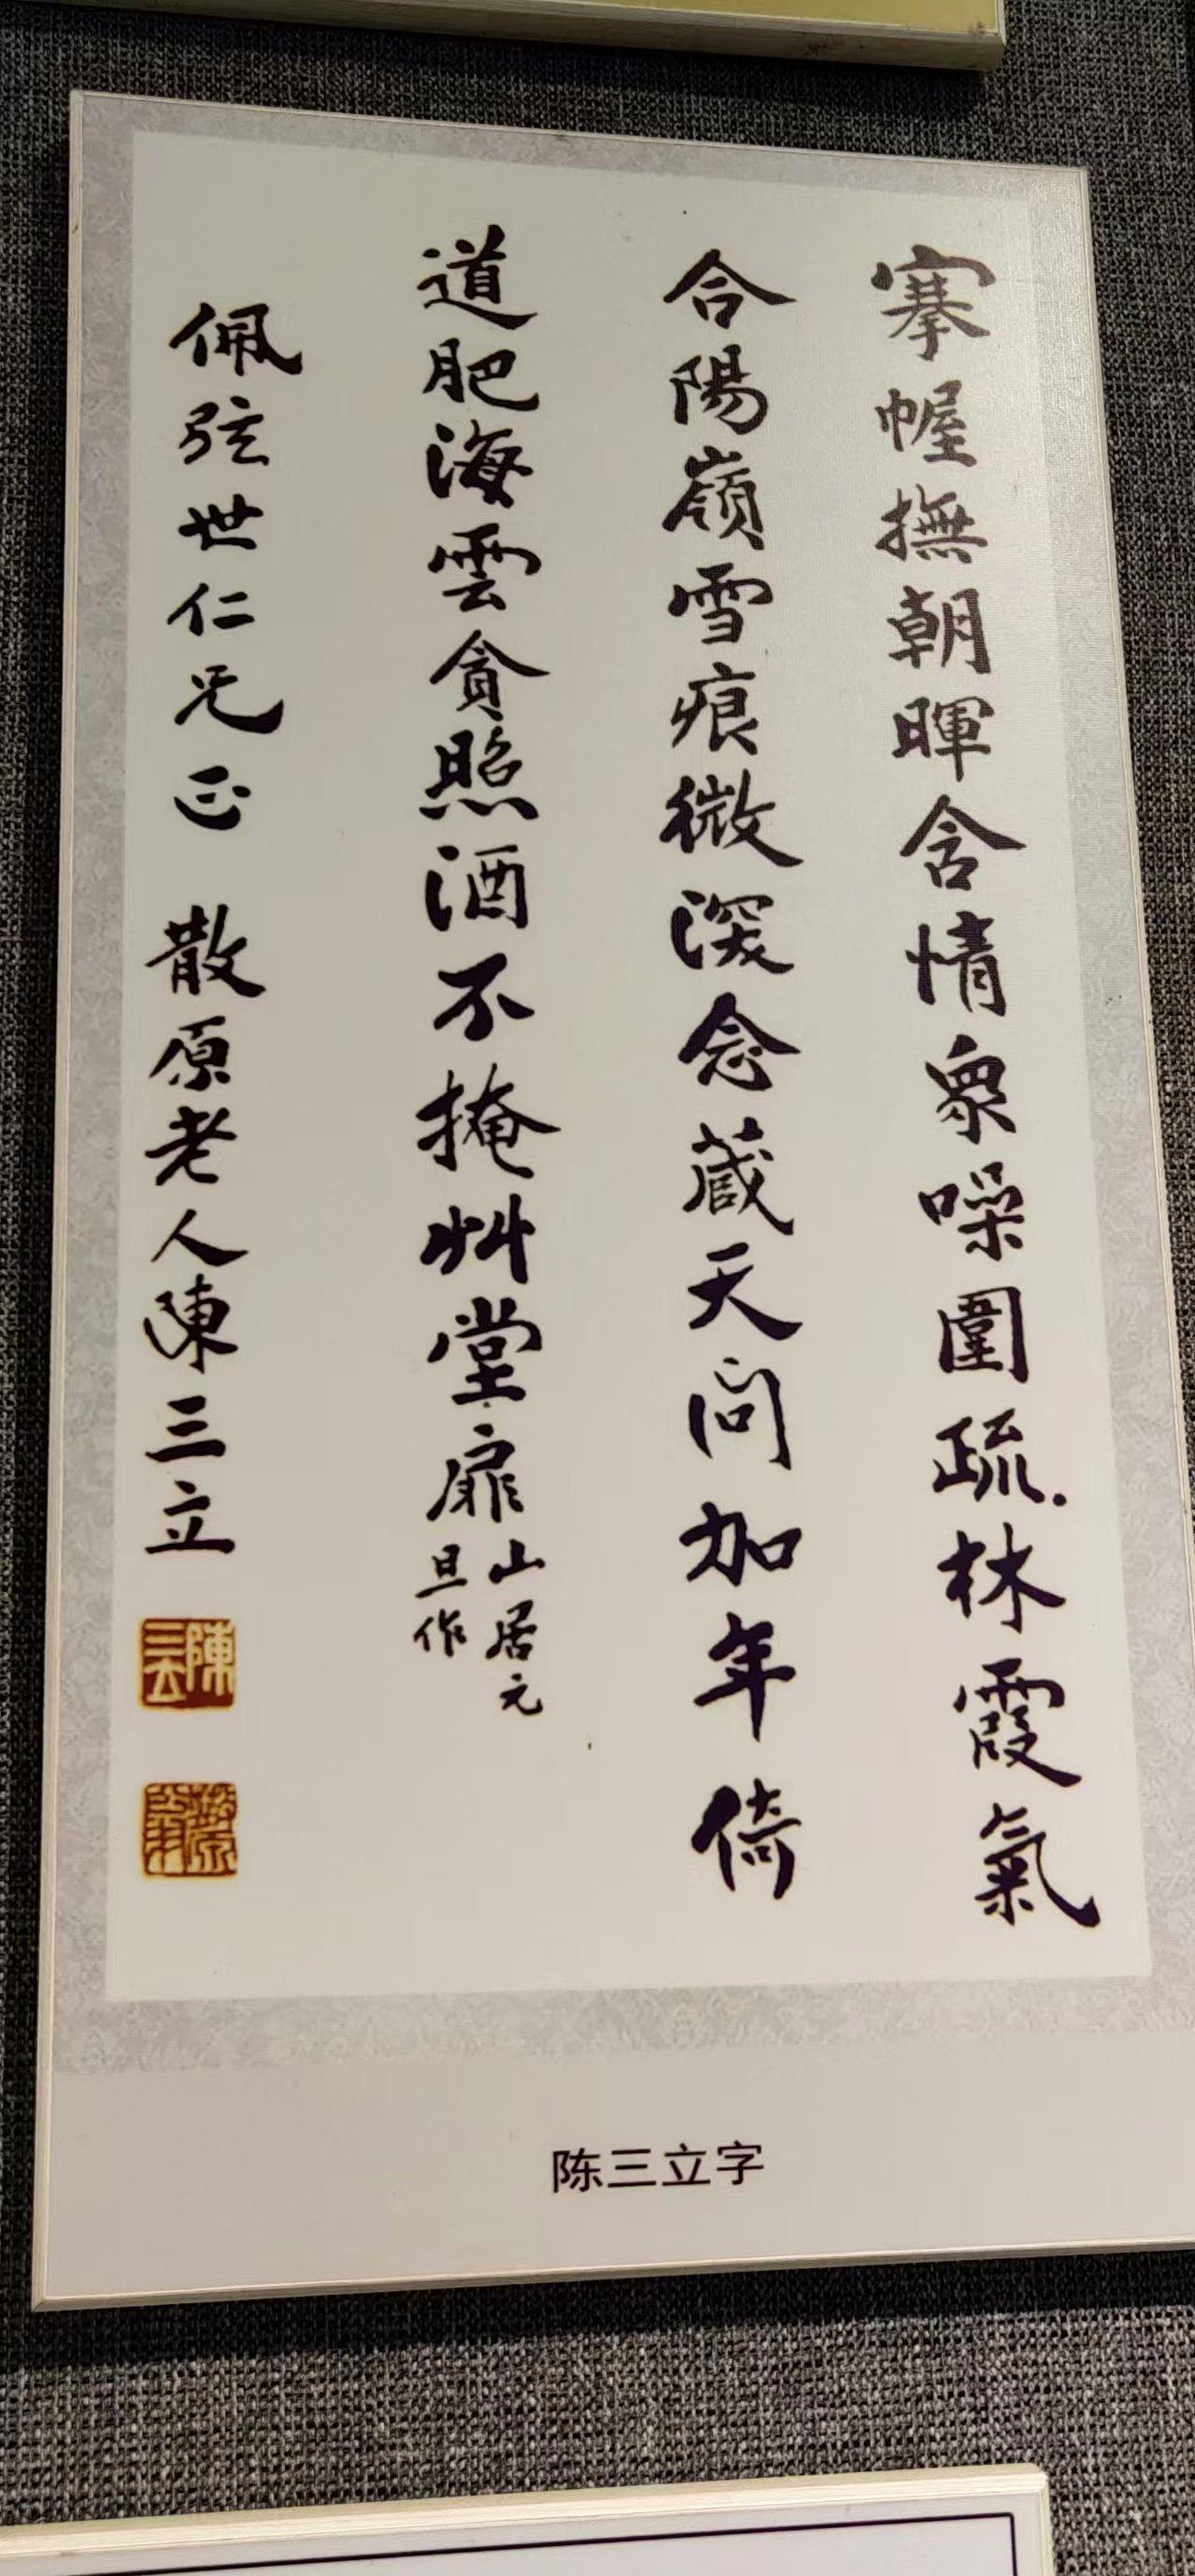 搴幄撫朝暉含情衆噪圍疏林霞氣
合陽嶺雪痕微深念蔵天问加年倚
道肥海雲貪照酒不掩艸堂扉山居元
旦作
佩弦世仁兄正 散原老人陳三立
陳三立
散原
陈三立字